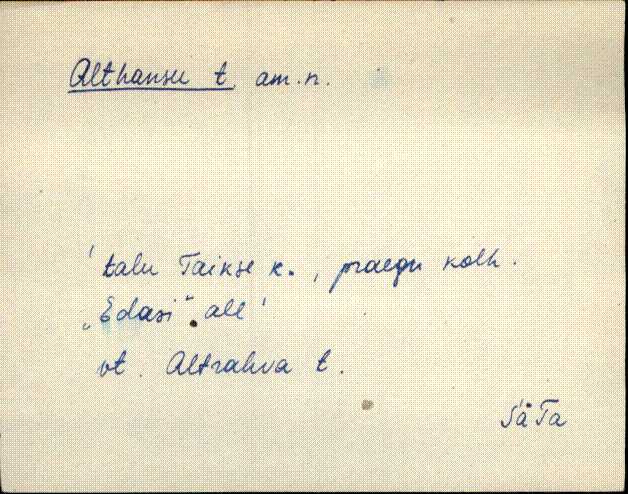 Althansu t. am.n.
' talu Taikse k., praegu kolh.
„Edasi“ all '
vt. Altrahva t.
SäTa